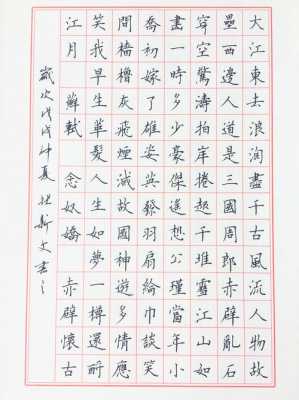 大江東去浪淘盡千古風流人物故
壘西邊人道是三國周郎赤壁亂石
穿空驚濤拍岸捲起千堆雪江山如
畫一時多少豪傑遙想公瑾當年小
喬初嫁了雄姿英發羽扇綸巾談笑
間檣櫓灰飛煙滅故國神遊多情應
笑我早生華髮人生如夢一樽還酹
江月 蘇軾 念奴嬌 赤壁懷古
歲次戊戌仲夏 新文書之